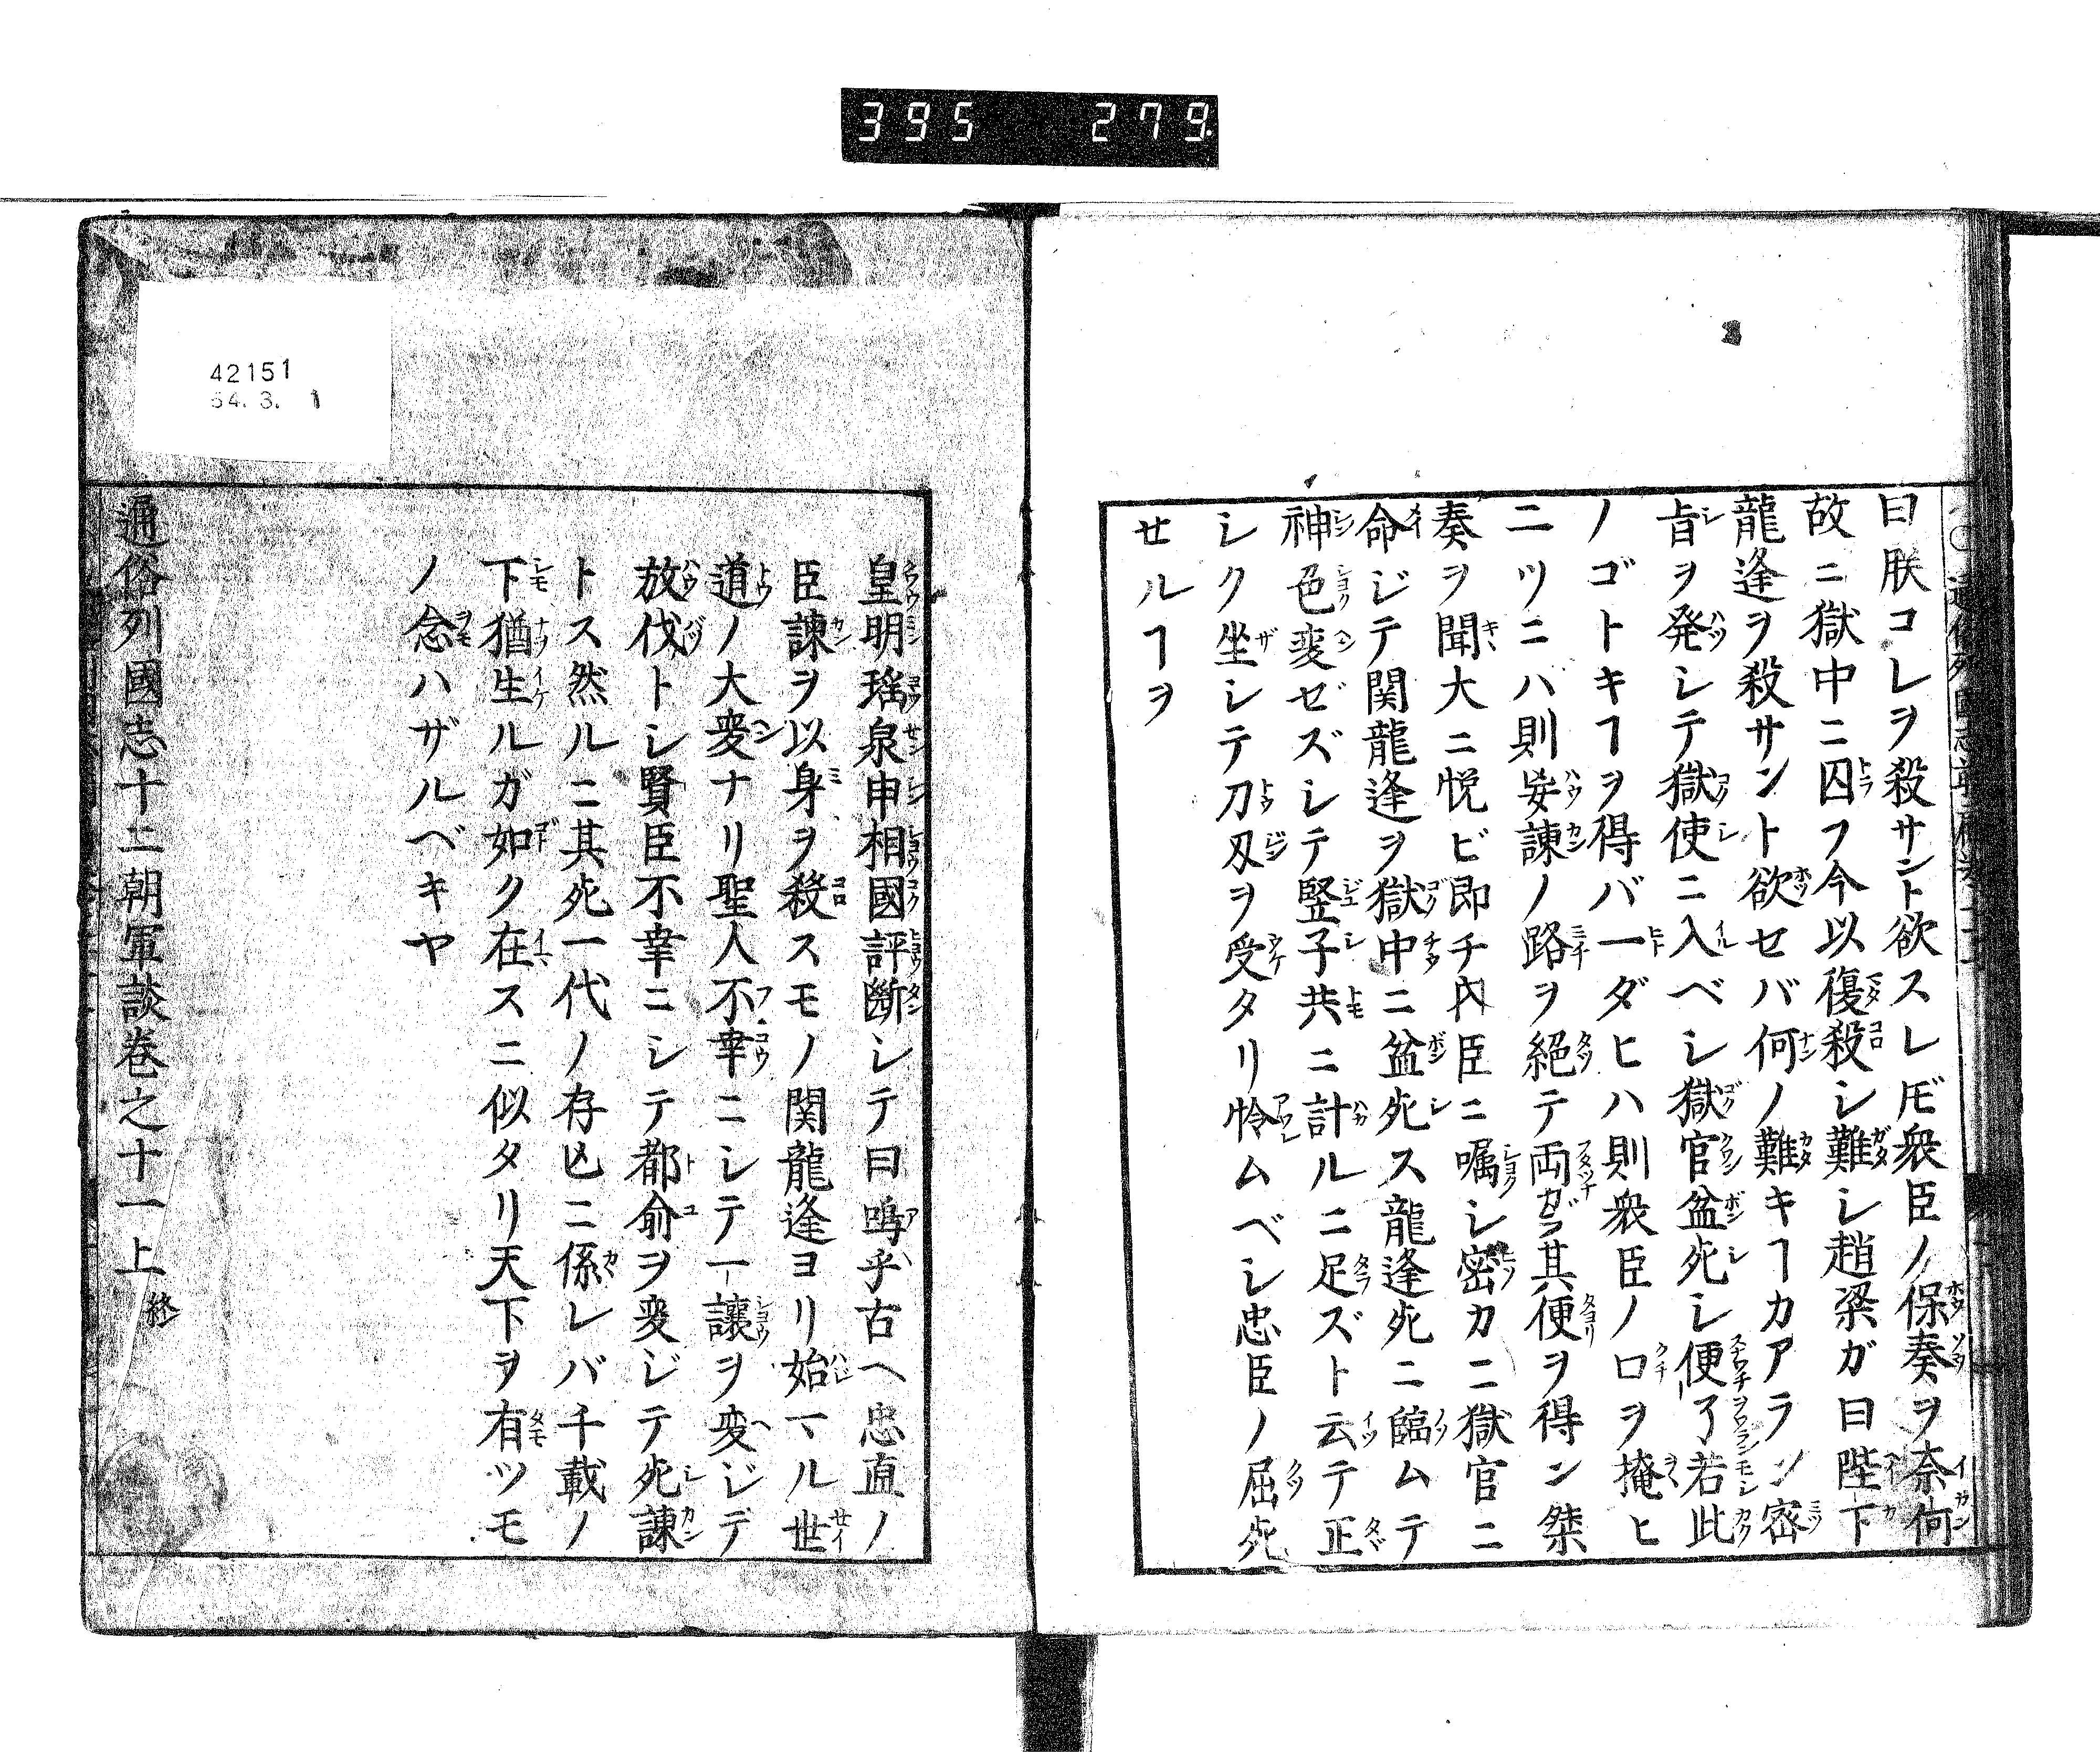 395 279
曰朕コレヲ殺サント欲スレ𪜈衆臣ノ保奏ヲ奈何
故ニ獄中ニ囚フ今以復殺シ難シ趙梁ガ曰陛下
龍逢ヲ殺サント欲セバ何ノ難キヿカアラン密
旨ヲ発シテ獄使ニ入ベシ獄官盆死シ便了若此
ノゴトキヿヲ得バ一ダヒハ則衆臣ノ口ヲ掩ヒ
二ツニハ則妄諫ノ路ヲ絕テ両ガラ其便ヲ得ン桀
奏ヲ聞大ニ悦ビ即チ內臣ニ嘱シ密カニ獄官ニ
命ジテ関龍逢ヲ獄中ニ盆死ス龍逢死ニ臨ムテ
神色変ゼズシテ竪子共ニ計ルニ足ズト云テ正
シク坐シテ刀刄ヲ受タリ怜ムベシ忠臣ノ屈死
セルヿヲ
皇明瑤泉申相國評斷シテ曰嗚乎古ヘ忠直ノ
臣諫ヲ以身ヲ殺スモノ関龍逢ヨリ始マル世
道ノ大変ナリ聖人不幸ニシテ一讓ヲ変ジテ
放伐トシ賢臣不幸ニシテ都俞ヲ変ジテ死諫
トス然ルニ其死一代ノ存亾ニ係レバ千載ノ
下猶生ルガ如ク在スニ似タリ天下ヲ有ツモ
ノ念ハザルベキヤ
通俗列國志十二朝軍談巻之十一上終
42151
54. 3. 1